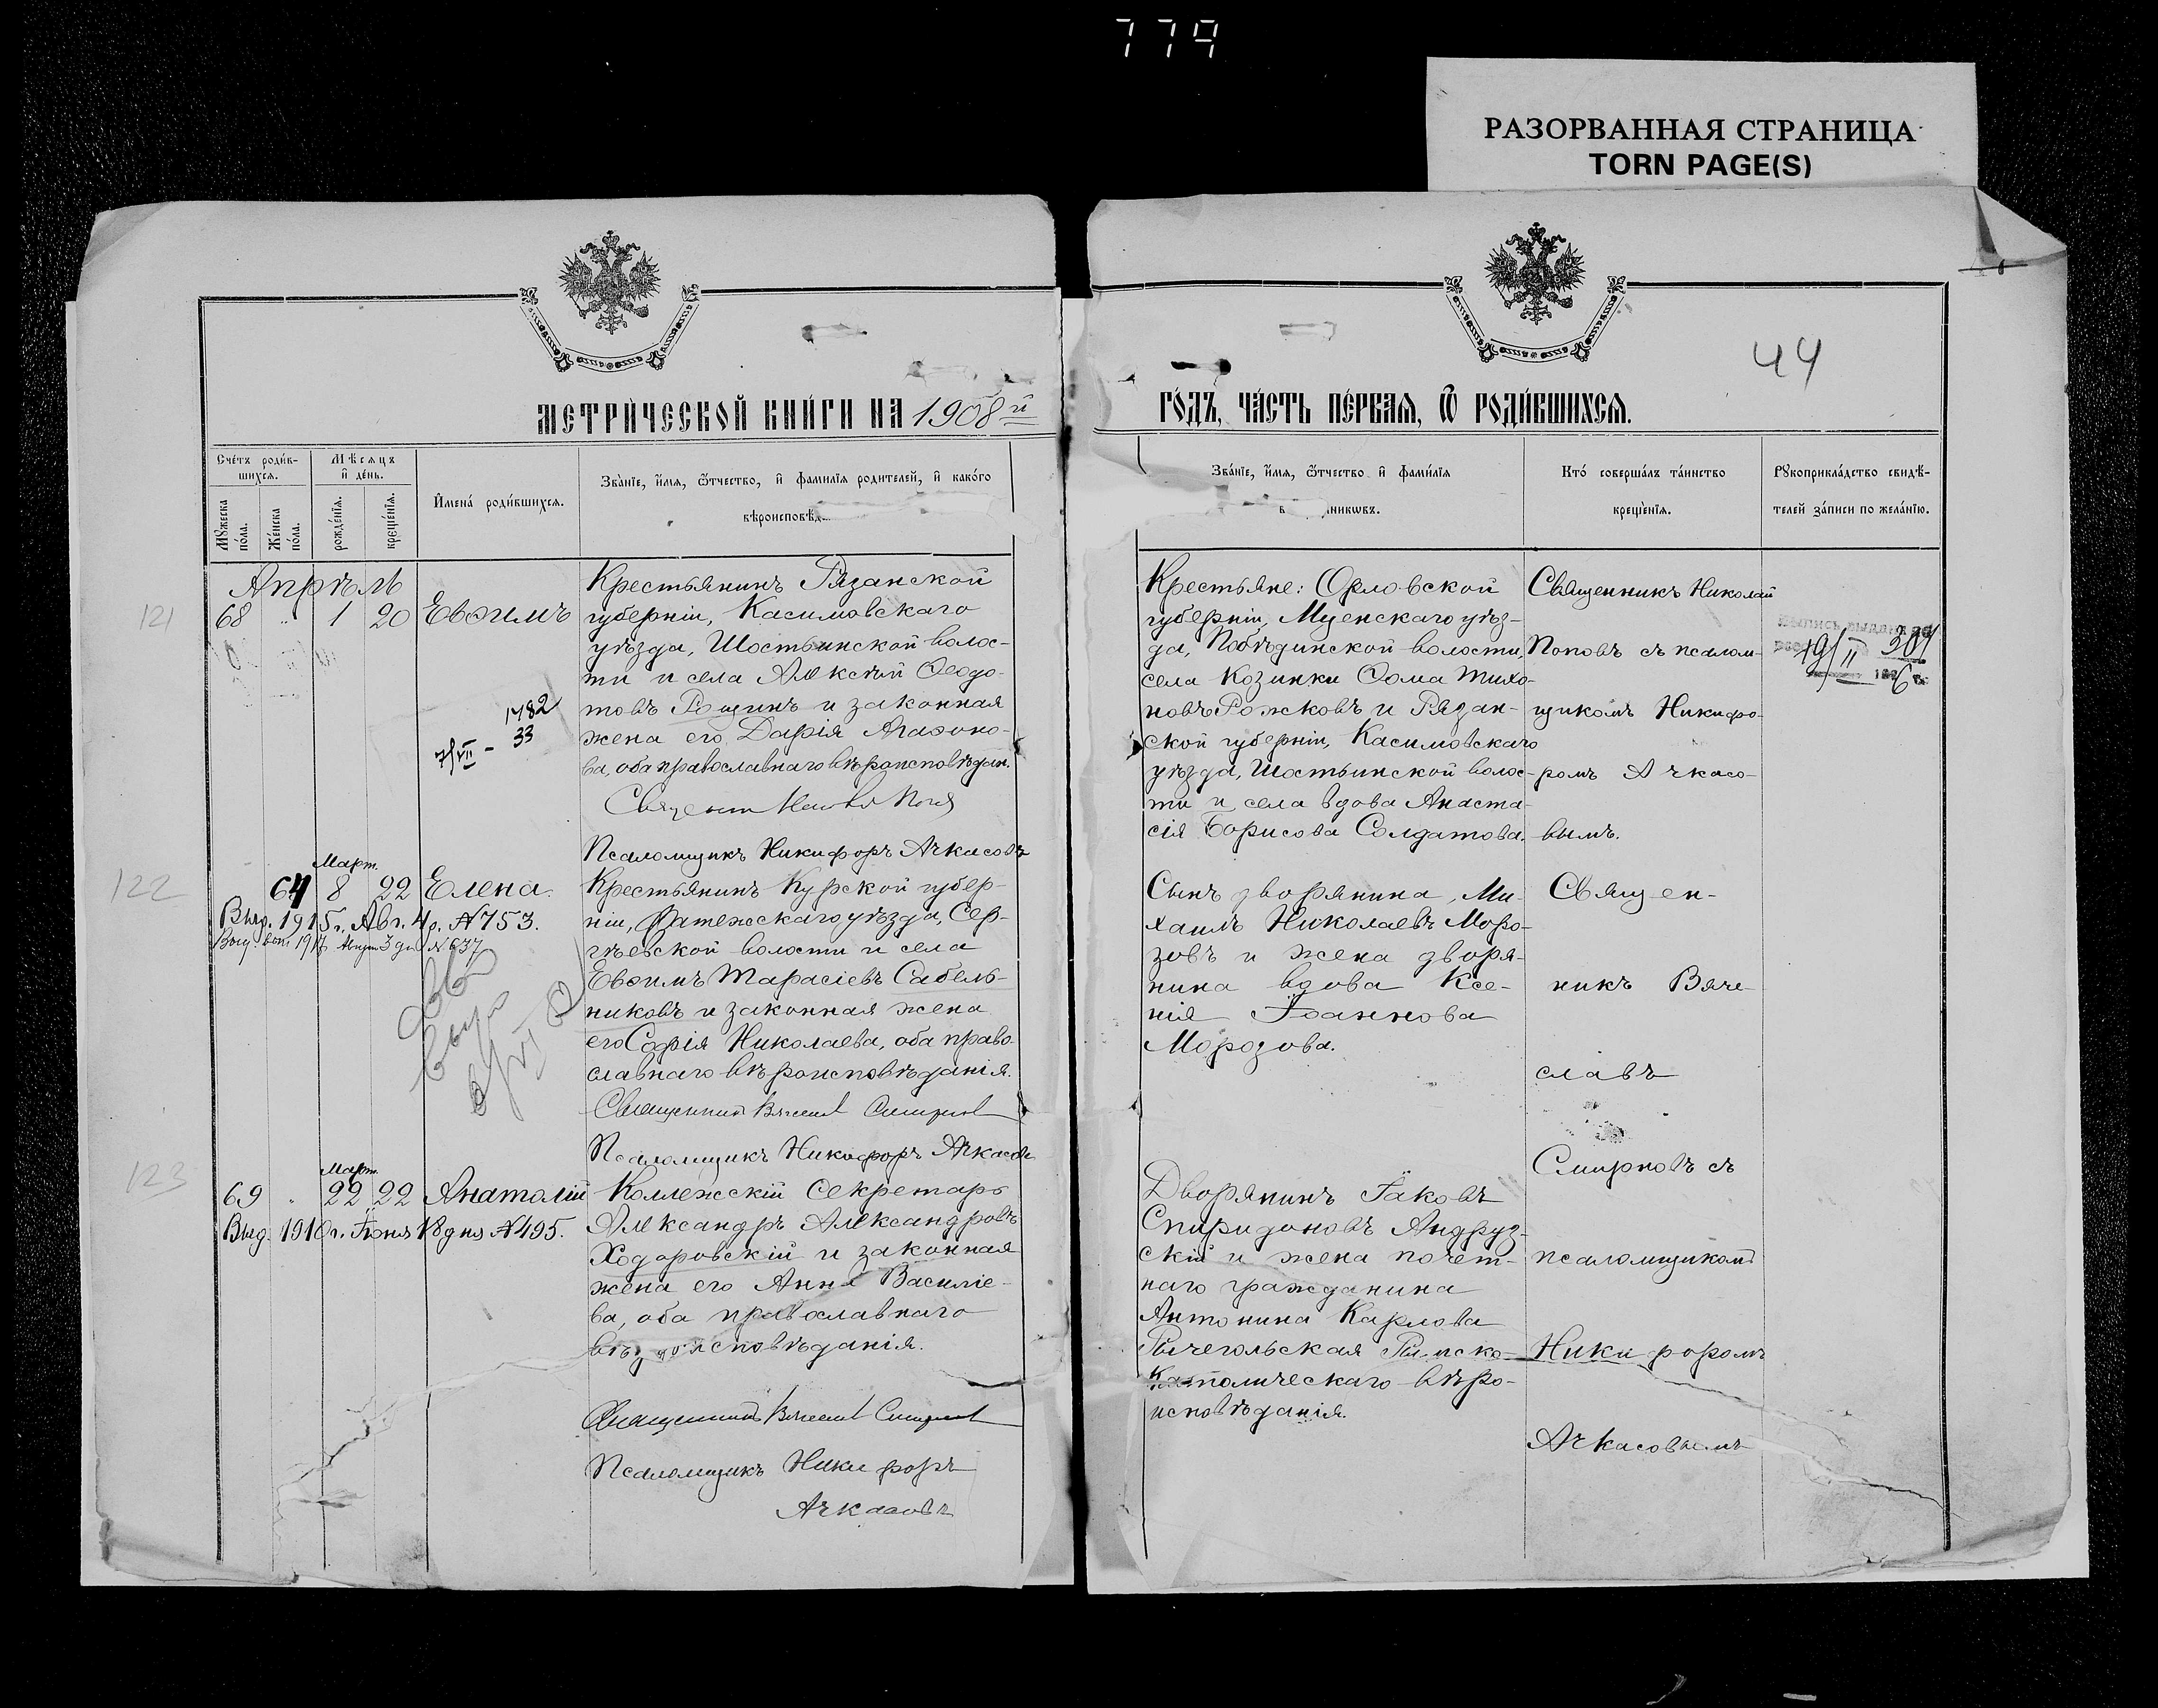 779
РАЗОРВАННАЯ СТРАНИЦА
TORN PAGE(S)
44
МЕТРИ́ЧЕСКОЙ КНИ́ГИ НА 1908й
ГО́ДЪ, ЧА́СТЬ ПЕ́РВАЯ, Ѿ РОДИ́ВШИХСЯ.
Сче́тъ роди́в-
шихся.
Мѣсяцъ
и де́нь.
Мꙋжеска по́ла.
Же́нска по́ла.
рожде́нїя.
креще́нїя.
Имена́ роди́вшихся.
Зва́нїе, и́мя, ѻ́тчество, и фами́лїя роди́телей, и како́го
вѣроисповѣд
Зва́нїе, и́мя, ѻ́тчество и фами́лїя
никѡвъ.
Кто́ соверша́лъ та́инство
креще́нїя.
Рꙋкоприкла́дство свидѣ́-
телей за́писи по жела́нїю.
Апрѣль
121
68 " 1 20
Евѳимъ
1782
7/VII - 33
Крестьянинъ Рязанской
губерніи, Касимовскаго
уѣзда, Шостьинской волос-
ти и села Алексѣй Ѳеодо-
товъ Рощинъ и законная
жена его Дарія Агаѳоно-
ва, оба православнаго вѣроисповѣдан.
Псаломщикъ Никифоръ Ачкасовъ
Крестьяне: Орловской
губерніи, Мценскаго уѣз-
да, Побѣдинской волости,
села Козинки Ѳома Тихо-
новъ Рожковъ и Рязан-
ской губерніи, Касимовскаго
уѣзда, Шостьинской волос-
ти и села вдова Анаста-
сія Борисова Солдатова.
Священникъ Николай
Поповъ съ псалом-
щикомъ Никифо-
ромъ Ачкасо-
вымъ.
19/II
122
Март.
64 8 22
Елена.
Выд. 1915 г. Авг. 4 д. №753.
№637
Крестьянинъ Курской губер-
ніи, Фатежскаго уѣзда, Сер-
гѣевской волости и села
Евѳимъ Тарасіевъ Сабель-
никовъ и законная жена
его Софія Николаева, оба право-
славнаго вѣроисповѣданія.
Священникъ Вячеслав Смирнов
Псаломщикъ Никифоръ Ачкасовъ
Сынъ дворянина, Ми-
хаилъ Николаевъ Моро-
зовъ и жена дворя-
нина вдова Ксе-
нія Іоаннова
Морозова.
Священ-
никъ Вяче-
славъ
Смирновъ съ
псаломщикомъ
Никифоромъ
Ачкасовымъ
123
Март.
69 " 22 22
Анатолій
Выд. 1910 г. Іюня 18 дня №495.
Коллежскій Секретарь
Александръ Александровъ
Ходоровскій и законная
жена его Анна Василіе-
ва, оба православнаго
вѣроисповѣданія.
Священникъ Вячеслав Смирнов
Псаломщикъ Никифоръ
Ачкасовъ
Дворянинъ Іаковъ
Спиридоновъ Андруз-
скій и жена почет-
наго гражданина
Антонина Карлова
Рычегольская Римско-
Католическаго вѣро-
исповѣданія.